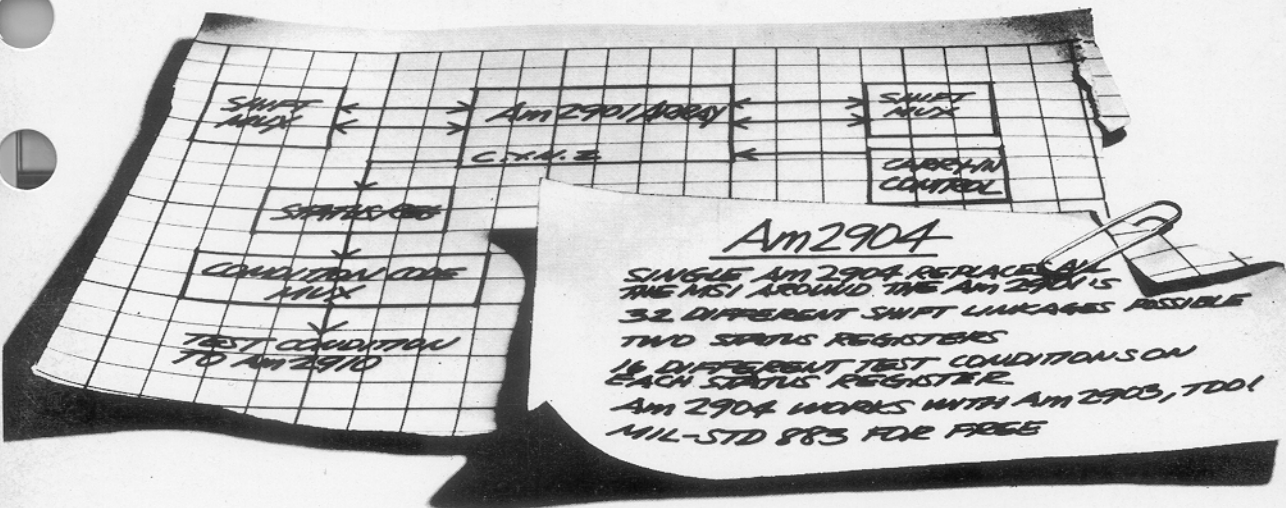 SHIFT
MUX
Am 2901 ARRAY
SHIFT
MUX
C.Y.N.Z
CARRY-IN
CONTROL
STATUS REG
CONDITION CODE
MUX
TEST CONDITION
TO Am 2910
Am2904
SINGLE Am 2904 REPLACES ALL
THE MSI AROUND THE Am 2901's
32 DIFFERENT SHIFT LINKAGES POSSIBLE
TWO STATUS REGISTERS
16 DIFFERENT TEST CONDITIONS ON
EACH STATUS REGISTER
Am 2904 WORKS WITH Am 2903, TOO!
MIL-STD 883 FOR FREE